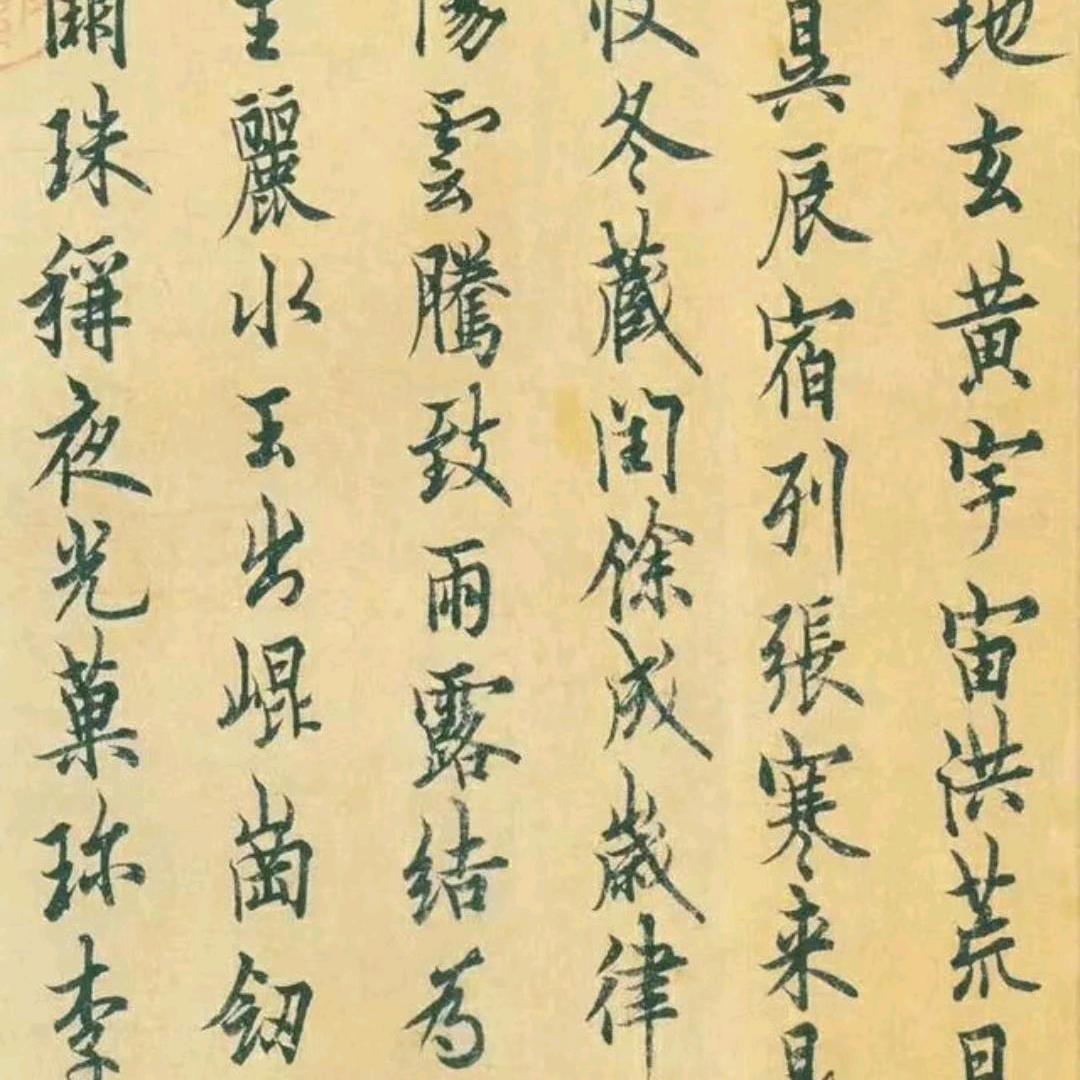 地玄黄宇宙洪荒日
昃辰宿列張寒来
收冬藏閏餘成歲律
陽雲騰致雨露結為
生麗水玉出崐崗釰
珠稱夜光菓珎李